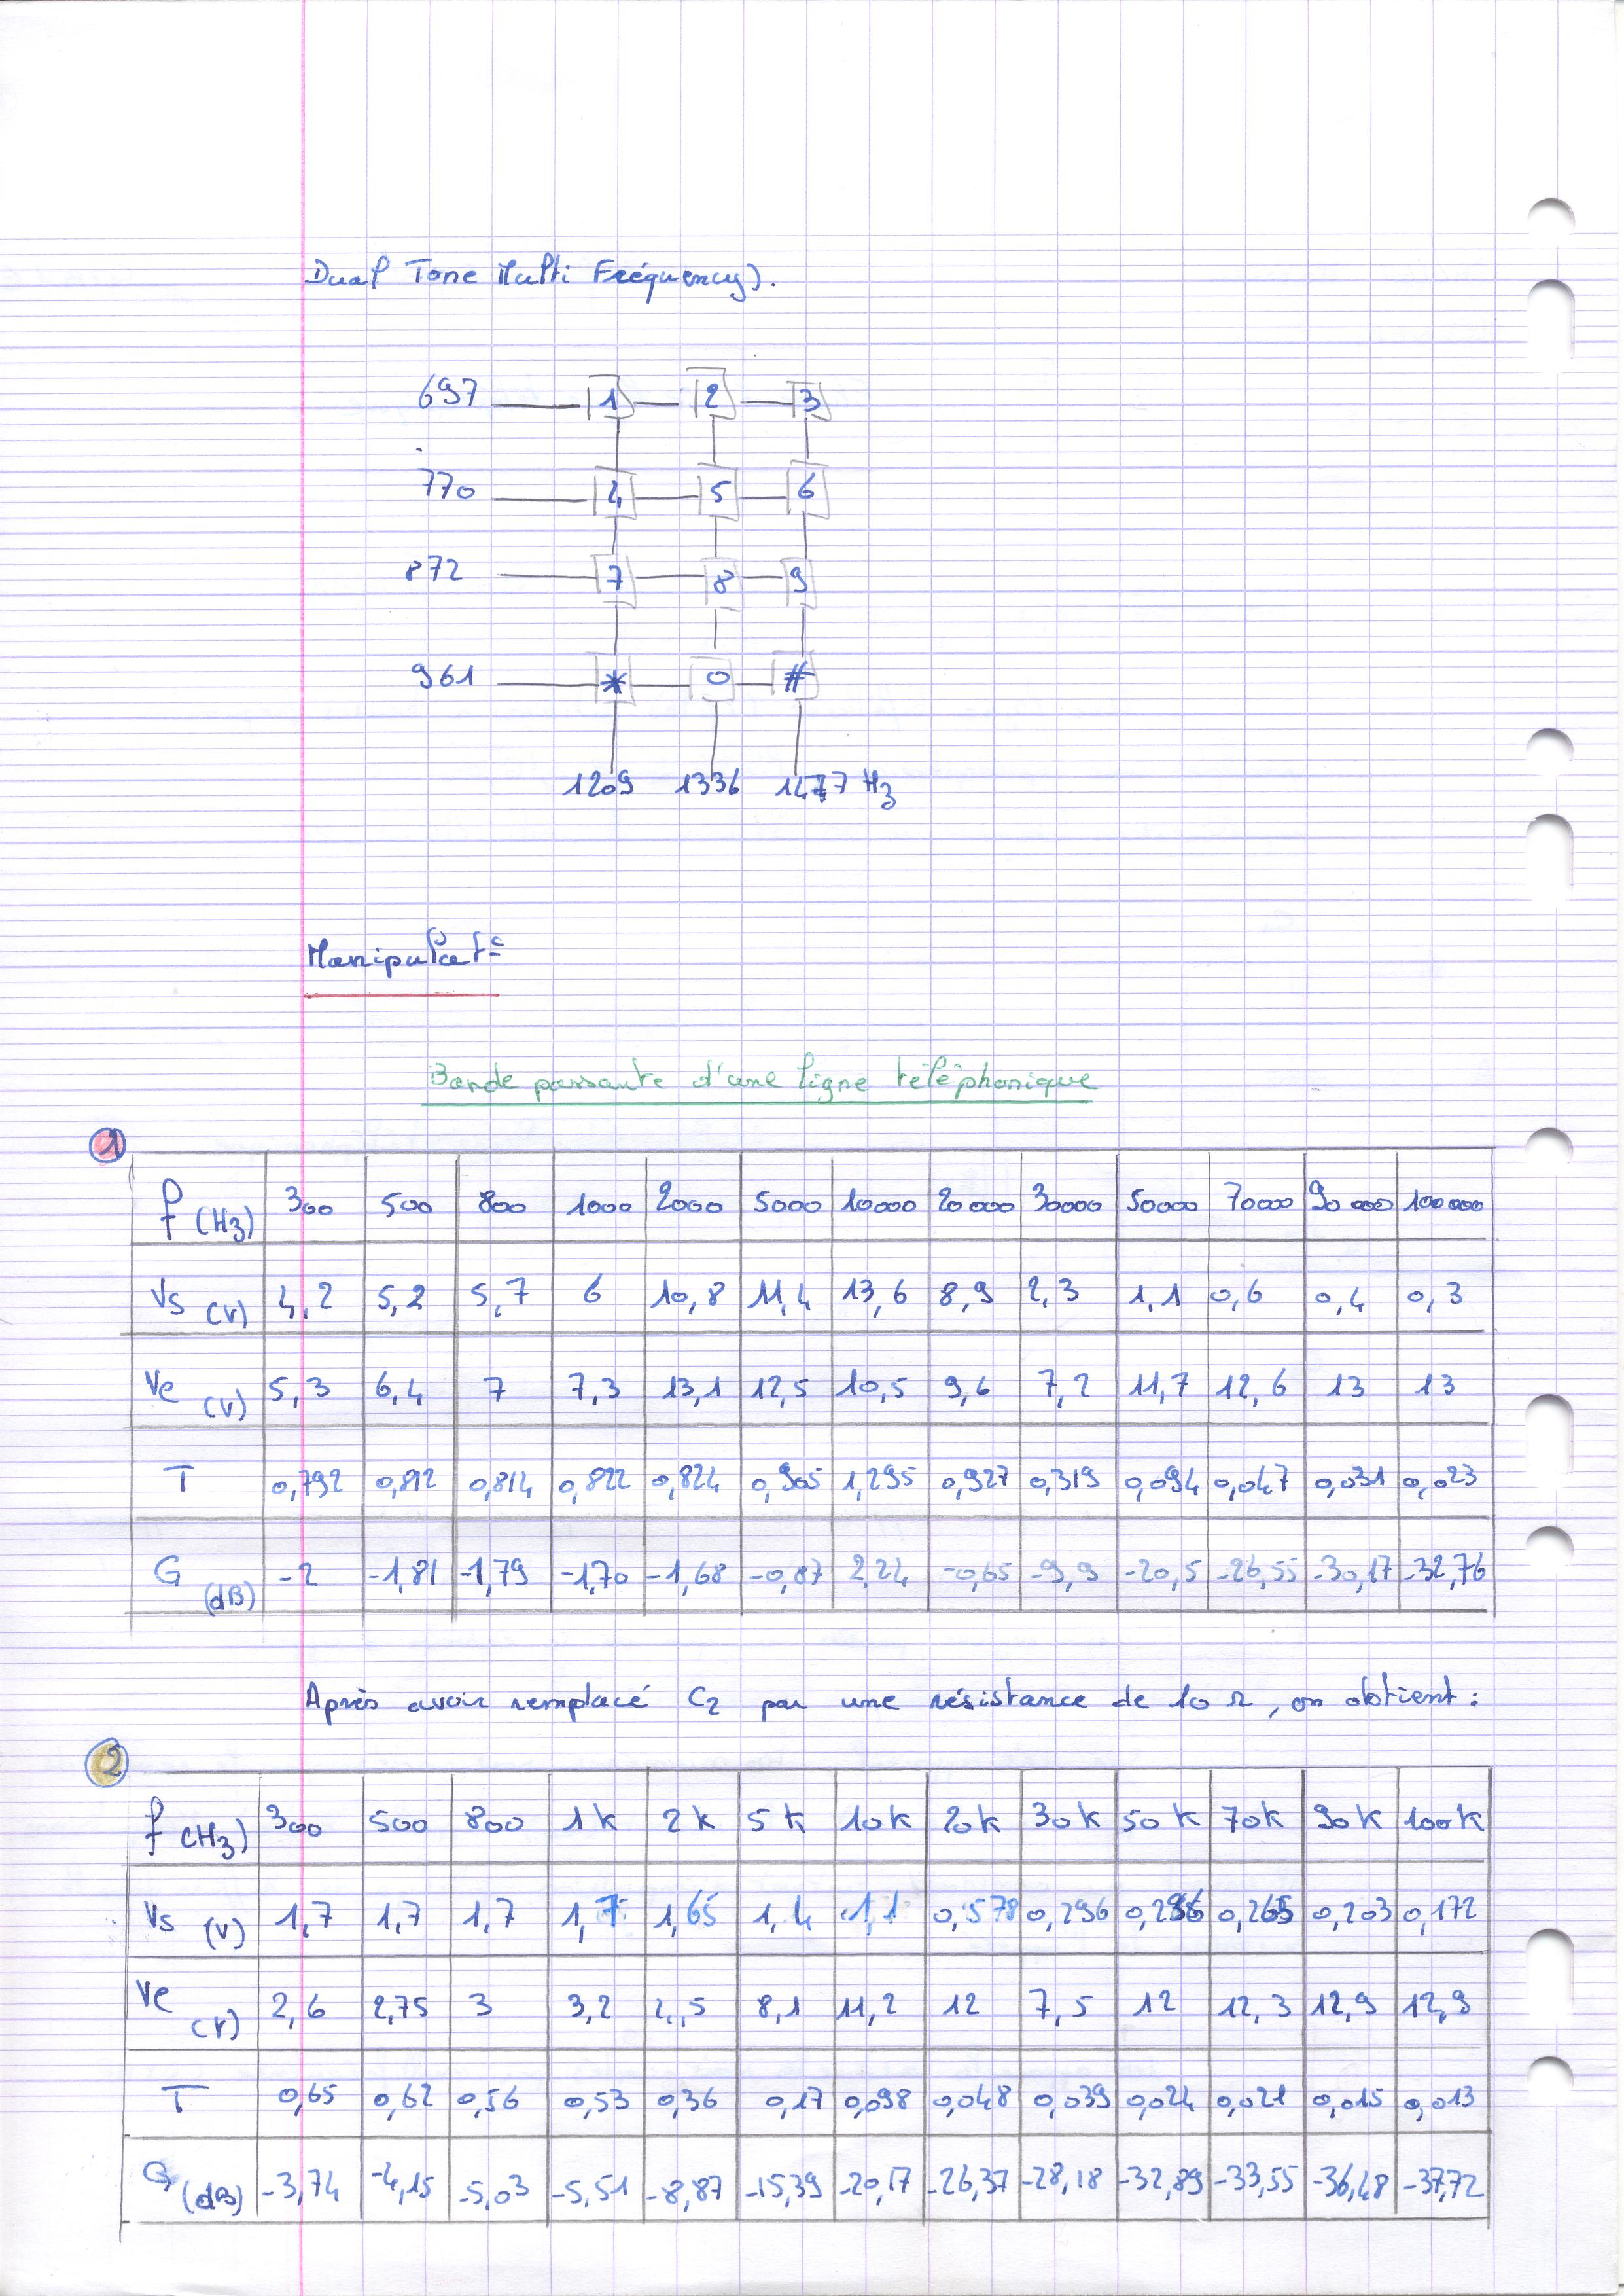 Dual Tone Multi Fréquency).
697 1 2 3
770 4 5 6
872 7 8 9
961 * 0 #
1209 1336 1477 Hz
Manipulat°
Bande passante d'une ligne téléphonique
1
f (Hz) 300 500 800 1000 2000 5000 10000 20000 30000 50000 70000 90000 100000
Vs (V) 4,2 5,2 5,7 6 10,8 11,4 13,6 8,9 2,3 1,1 0,6 0,4 0,3
Ve (V) 5,3 6,4 7 7,3 13,1 12,5 10,5 9,6 7,2 11,7 12,6 13 13
T 0,792 0,812 0,814 0,822 0,824 0,905 1,295 0,927 0,319 0,094 0,047 0,031 0,023
G (dB) -2 -1,81 -1,79 -1,70 -1,68 -0,87 2,24 -0,65 -9,9 -20,5 -26,55 -30,17 -32,76
Après avoir remplacé C2 par une résistance de 10 Ω, on obtient :
2
f (Hz) 300 500 800 1k 2k 5k 10k 20k 30k 50k 70k 90k 100k
Vs (V) 1,7 1,7 1,7 1,7 1,65 1,4 1,1 0,578 0,296 0,286 0,265 0,203 0,172
Ve (V) 2,6 2,75 3 3,2 4,5 8,1 11,2 12 7,5 12 12,3 12,9 12,9
T 0,65 0,62 0,56 0,53 0,36 0,17 0,098 0,048 0,039 0,024 0,021 0,015 0,013
G (dB) -3,74 -4,15 -5,03 -5,51 -8,87 -15,39 -20,17 -26,37 -28,18 -32,89 -33,55 -36,48 -37,72